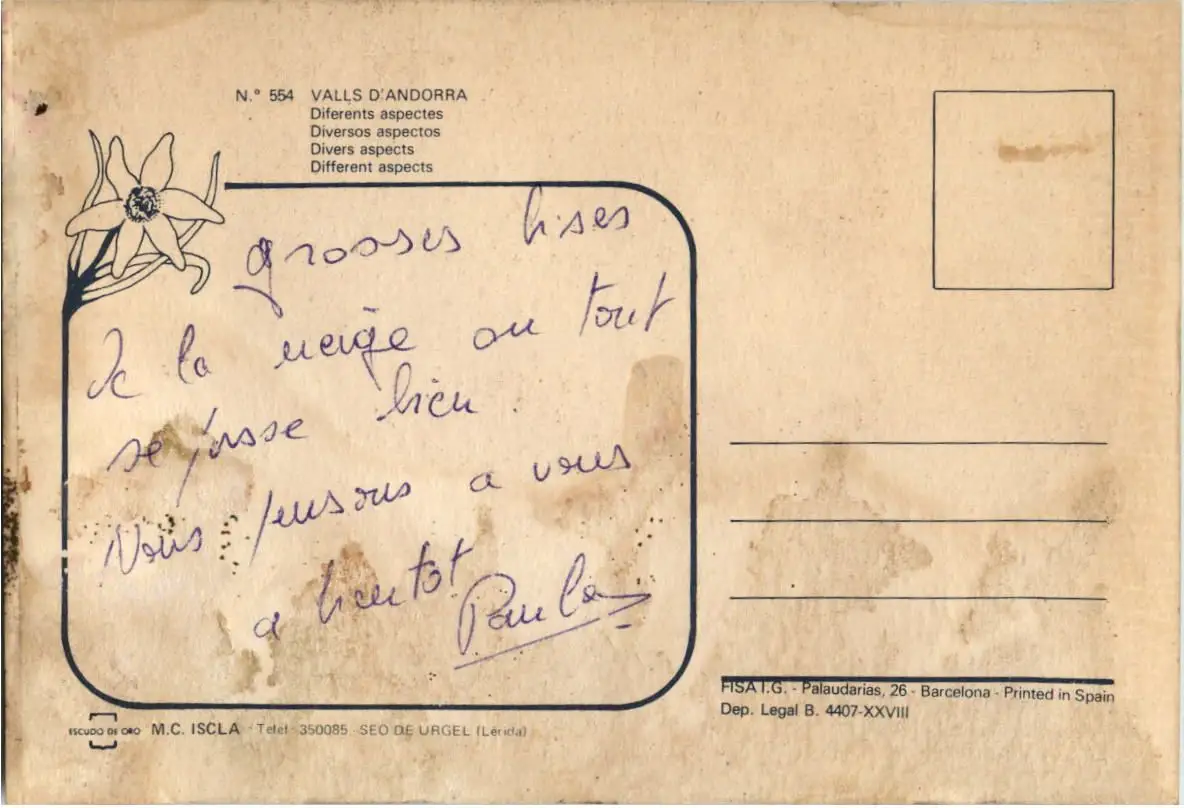 N.° 554 VALLS D'ANDORRA
Diferents aspectes
Diversos aspectos
Divers aspects
Different aspects
grosses bises
de la neige ou tout
se passe bien
Nous pensons a vous
a bientot
Paula
ESCUDO DE ORO M.C. ISCLA - Telef. 350085 SEO DE URGEL (Lérida)
FISA I.G. - Palaudarias, 26 - Barcelona - Printed in Spain
Dep. Legal B. 4407-XXVIII